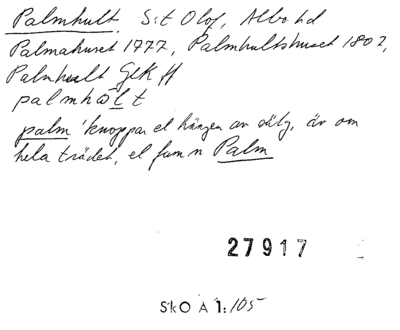 Palmhult S:t Olof, Albo hd
Palmahuset 1777, Palmhultshuset 1802,
Palmhult GEK ff
palmhölt
palm 'knoppar el hängen av sälg, äv om
hela trädet, el famn Palm
27917
SkO A 1:105